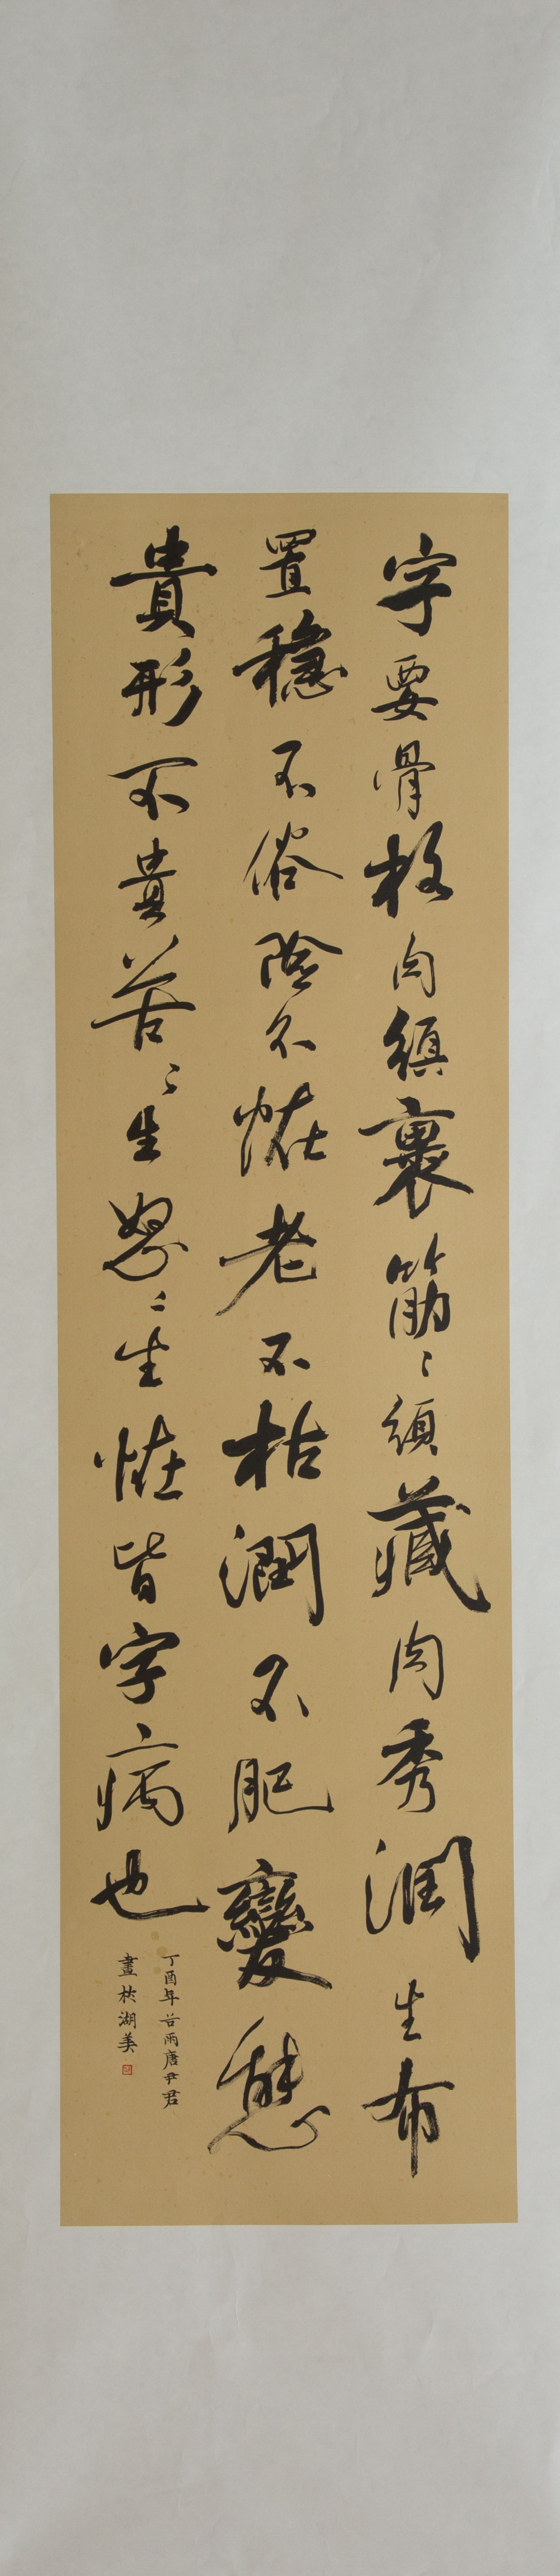 字要骨格肉須裹筋〻須藏肉秀潤生布
置穩不俗險不怪老不枯潤不肥變態
貴形不貴苦〻生怒〻生怪皆字病也
丁酉年谷雨唐尹君
畫於湖美